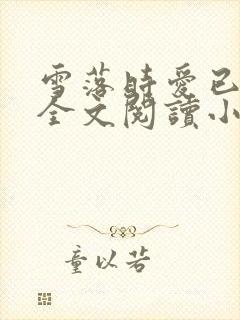 雪落時愛已
全文閱讀小
童以若